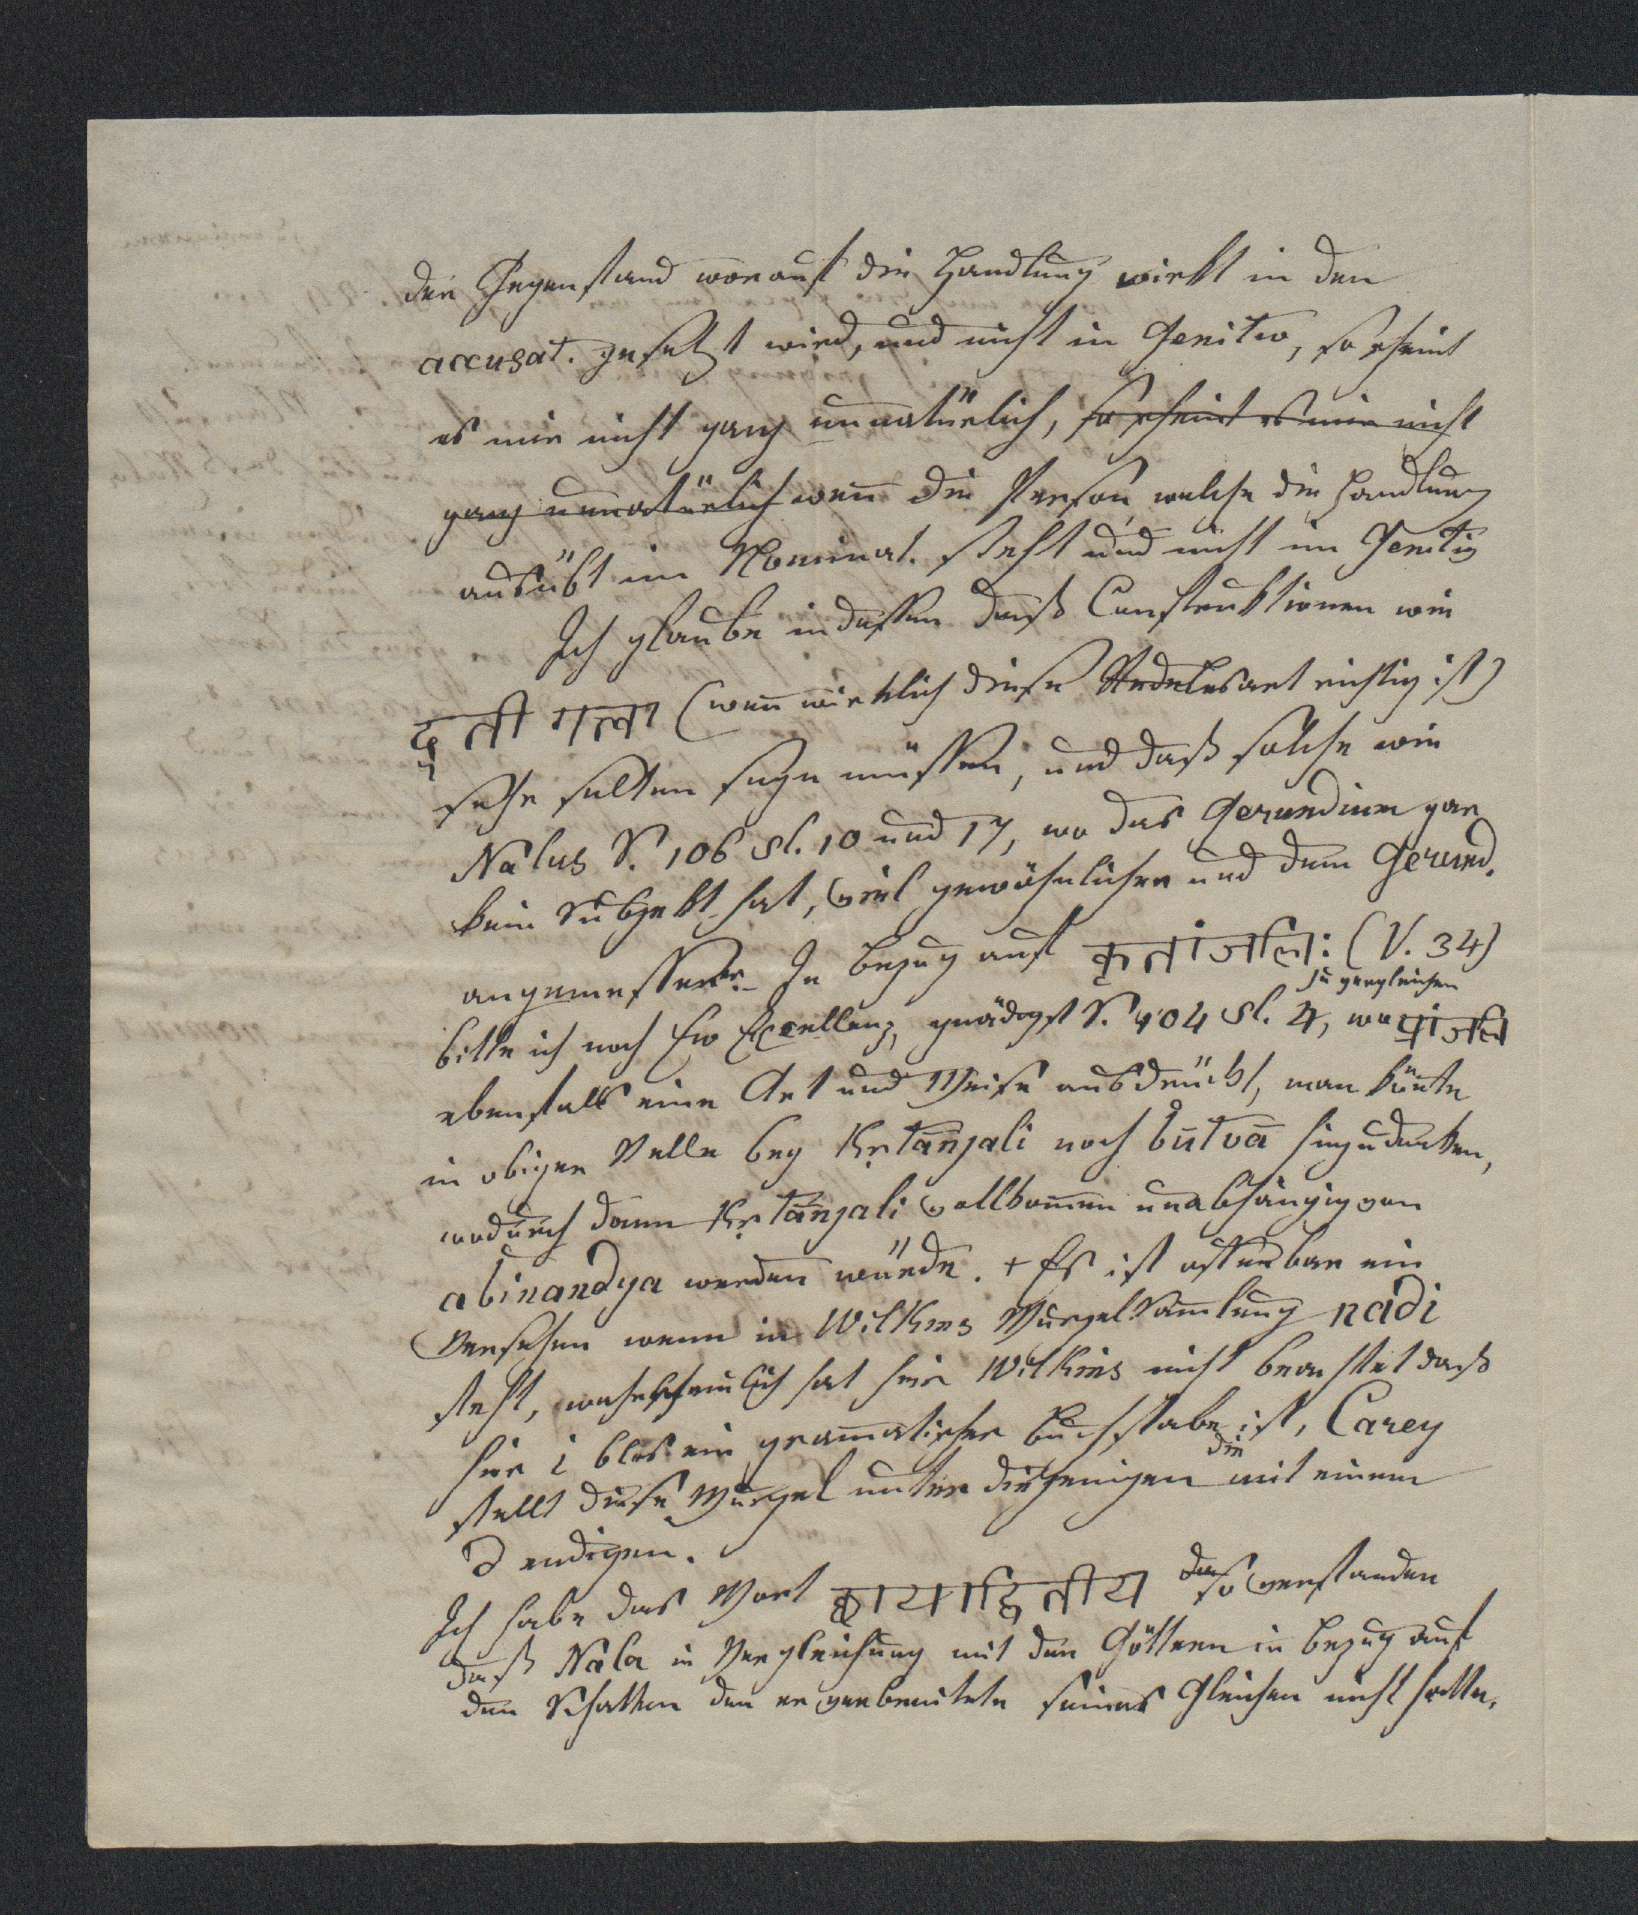 der Gegenstand worauf die Handlung wirkt in den
accusat. gesetzt wird, und nicht in Genitiv, so scheint
es mir nicht ganz unnatürlich, so scheint es mir nicht
ganz unnatürlich wen̄ die Person, welche die Handlung
ausübt im Nominat. steht und nicht im Genitiv
Ich glaube indessen daß Construktionen wie
(wen̄ wirklich diese Lesart richtig ist)
sehr selten seyn müssen, und daß solche wie
Nalus S. 106 sl. 10 und 17, wo das Gerundium gar
kein Subjekt hat, viel gewöhnlicher und dem Gerund.
angemessener. In Bezug auf कृतांजलि: (V. 34)
zu vergleichen
bitte ich noch Ew Excellenz, gnädigst S. 104 sl. 4, wo प्रांजलि
ebenfalls eine Art und Weise ausdrückt, man kön̄te
in obiger Stelle bey Kṛtānjali noch būtvā hinzudenken,
wodurch dann Kṛtānjali vollkom̄en unabhängig von
abinandya werden würde. + Es ist offenbar ein
Versehen wenn in Wilkins Wurzelsam̄lung nadi
steht, wahrscheinlich hat hier Wilkins nicht beachtet daß
hier i blos ein gram̄atischer Buchstabe ist, Carey
die
stellt diese Wurzel unter diejenigen mit einem
d endigen.
Ich habe das Wort छायाद्वितीय so verstanden
daß Nala in Vergleichung mit den Göttern in Bezug auf
den Schatten den er verbreitete seines Gleichen nicht hatte.